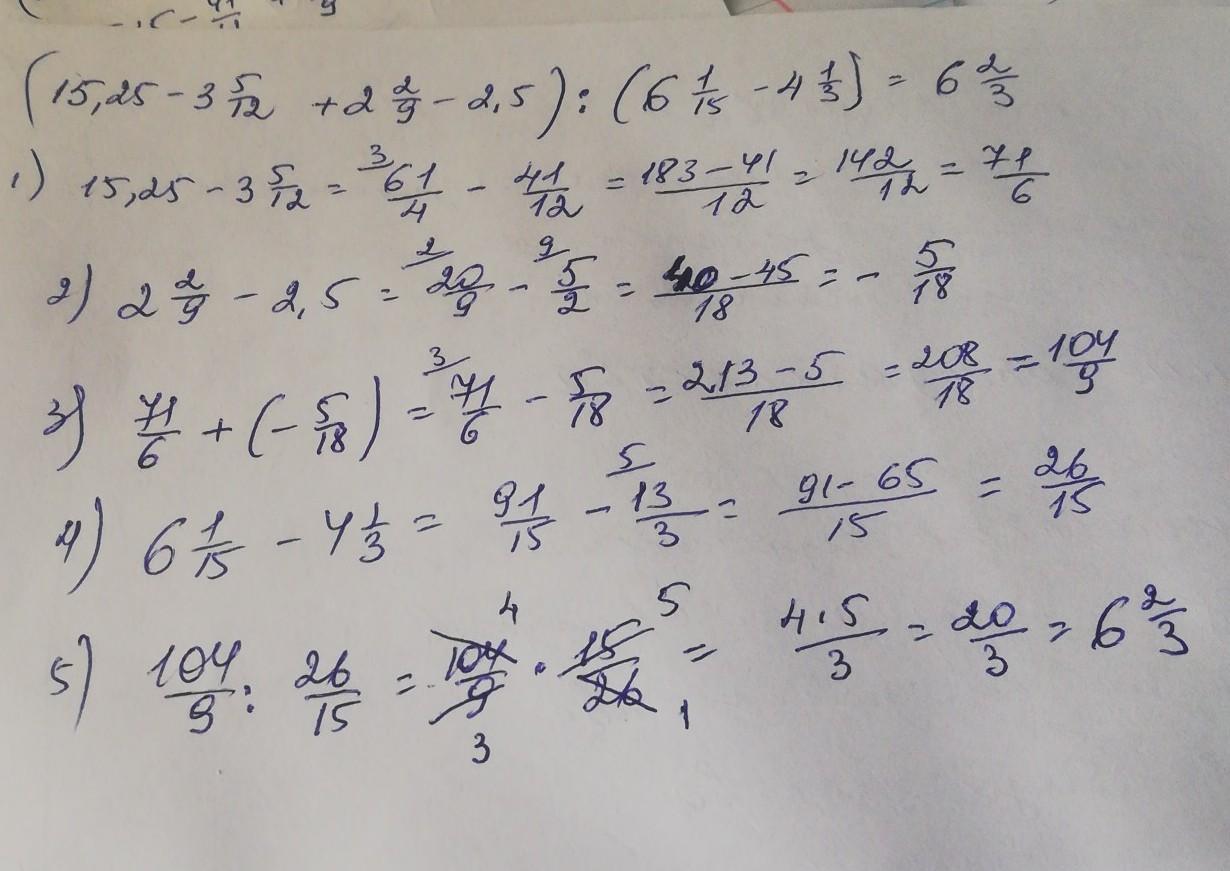 (15,25 - 3 5/12 + 2 2/9 - 2,5) : (6 1/15 - 4 1/3) = 6 2/3
1) 15,25 - 3 5/12 = ³61/4 - 41/12 = 183-41/12 = 142/12 = 71/6
2) 2 2/9 - 2,5 = ²20/9 - ⁹5/2 = 40-45/18 = - 5/18
3) 71/6 + (- 5/18) = ³71/6 - 5/18 = 213-5/18 = 208/18 = 104/9
4) 6 1/15 - 4 1/3 = 91/15 - ⁵13/3 = 91-65/15 = 26/15
5) 104/9 : 26/15 = 104 4/9 3 · 15 5/26 1 = 4·5/3 = 20/3 = 6 2/3